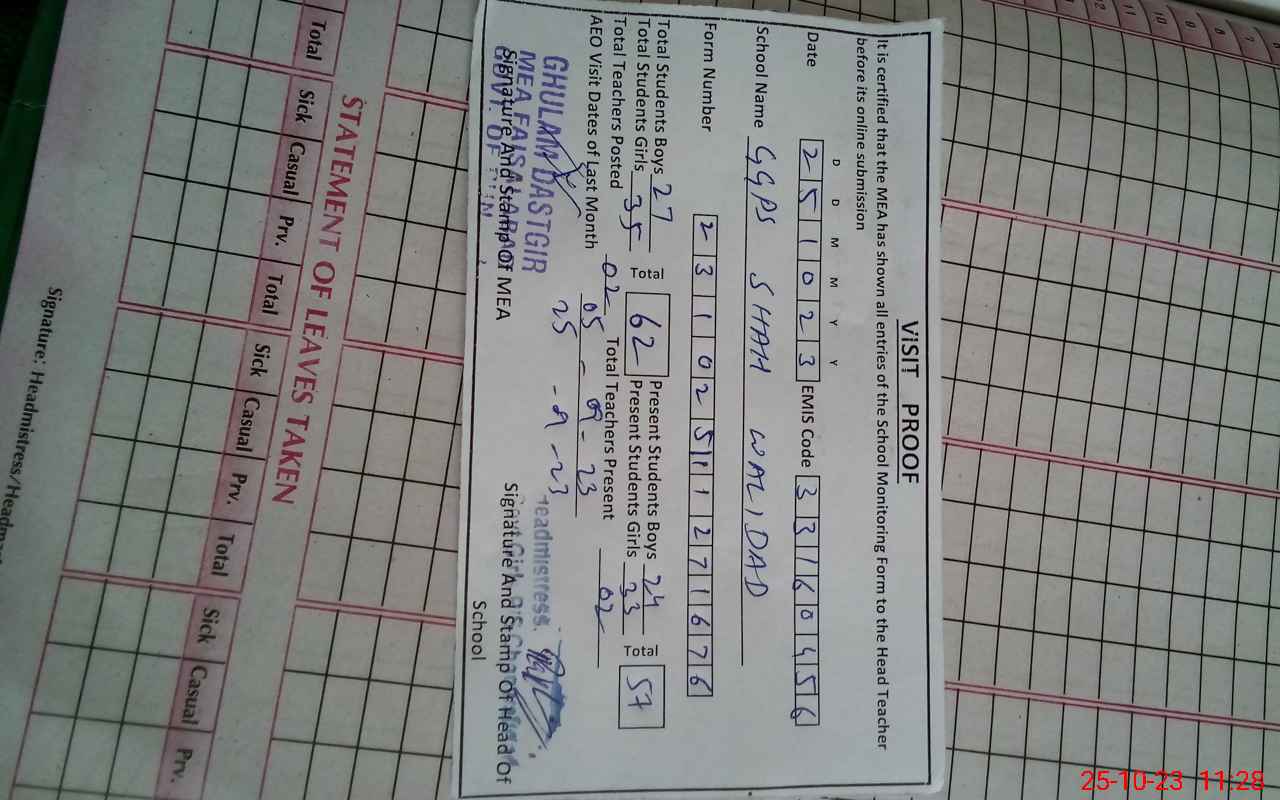 VISIT PROOF
It is certified that the MEA has shown all entries of the School Monitoring Form to the Head Teacher
before its online submission
D D M M Y Y
Date 2 5 1 0 2 3 EMIS Code 3 3 1 6 0 4 5 6
School Name GGPS SHAH WALIDAD
Form Number 2 3 1 1 0 2 5 1 1 2 7 1 6 7 6
Total Students Boys 27 Present Students Boys 24
Total 62 Total 57
Total Students Girls 35 Present Students Girls
Total Teachers Posted 02 Total Teachers Present 02
AEO Visit Dates of Last Month 05 - 09 - 23
25 - 9 - 23
GHULAM DASTGIR
MEA FAISALABAD
Headmistress
Signature And Stamp Of MEA
Signature And Stamp Of Head Of
School
12 11 10 9 8 7
STATEMENT OF LEAVES TAKEN
Total Sick Casual Prv. Total Sick Casual Prv. Total Sick Casual Prv.
Signature: Headmistress/
25-10-23 11:28